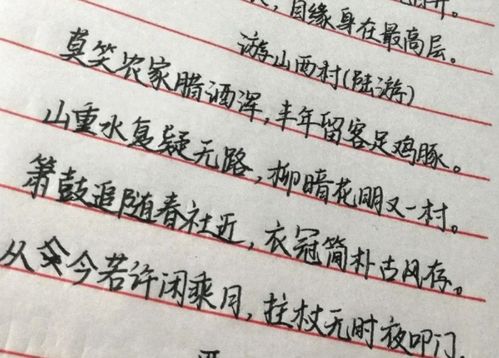 自缘身在最高层。
游山西村(陆游)
莫笑农家腊酒浑,丰年留客足鸡豚。
山重水复疑无路,柳暗花明又一村。
箫鼓追随春社近,衣冠简朴古风存。
从今若许闲乘月,拄杖无时夜叩门